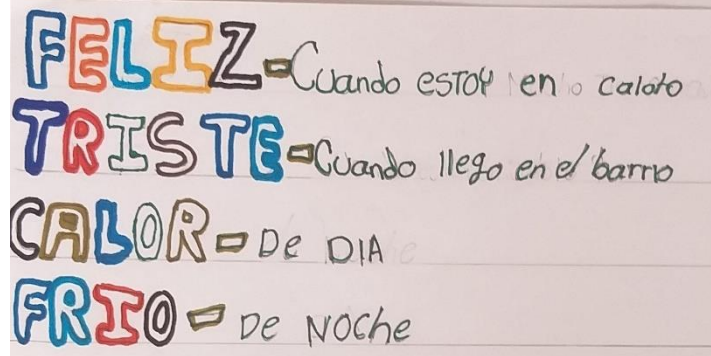 FELIZ - Cuando ESTOY en caloto
TRISTE - Cuando llego en el barrio
CALOR - De DIA
FRIO - De NOChe